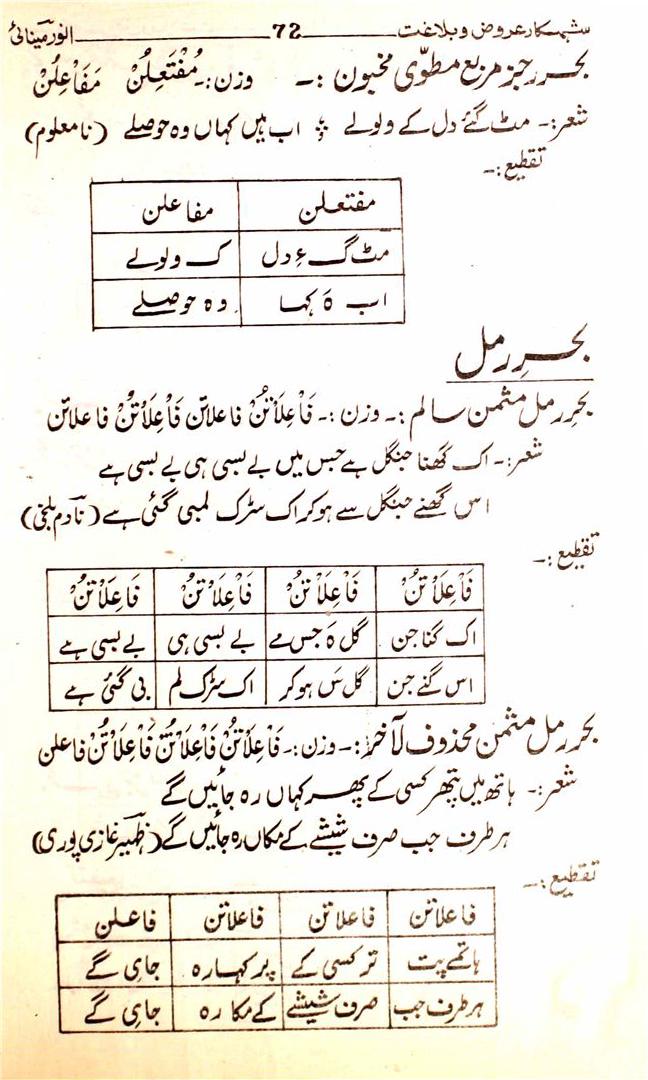 شہکار عروض و بلاغت 72 انور مینائی
بحرِ رجز مربع مطوّی مخبون :۔ وزن :۔ مُفْتَعِلُنْ مَفَاْعِلُنْ
شعر :۔ مٹ گئے دل کے ولولے ؛ اب ہیں کہاں وہ حوصلے (نامعلوم)
تقطیع :۔
مفتعلن مفاعلن
مٹ گ ءِ دل ک ولولے
اب ہَ کہا وہ حوصلے
بحرِ رمل
بحرِ رمل مثمن سالم :۔ وزن :۔ فَاْعِلَاْتُنْ فاعلاتن فَاْعِلَاْتُنْ فاعلاتن
شعر :۔ اک گھنا جنگل ہے جس میں بے بسی ہی بے بسی ہے
اس گھنے جنگل سے ہو کر اک سڑک لمبی گئی ہے (نادم بلخی)
تقطیع :۔
فَاْعِلَاْتُنْ فَاْعِلَاْتُنْ فَاْعِلَاْتُنْ فَاْعِلَاْتُنْ
اک گنا جن گل ہَ جس مے بے بسی ہی بے بسی ہے
اس گنے جن گل سَ ہو کر اک سڑک لم بی گئی ہے
بحرِ رمل مثمن محذوف لآخر :۔ وزن :۔ فَاْعِلَاْتُنْ فَاْعِلَاْتُنْ فَاْعِلَاْتُنْ فاعلن
شعر :۔ ہاتھ میں پتھر کسی کے پھر کہاں رہ جائیں گے
ہر طرف جب صرف شیشے کے مکاں رہ جائیں گے (ظہیر غازی پوری)
تقطیع :۔
فاعلاتن فاعلاتن فاعلاتن فاعلن
ہاتمے پت تر کسی کے پر کہارہ جای گے
ہر طرف جب صرف شیشے کے مکا رہ جاءِی گے